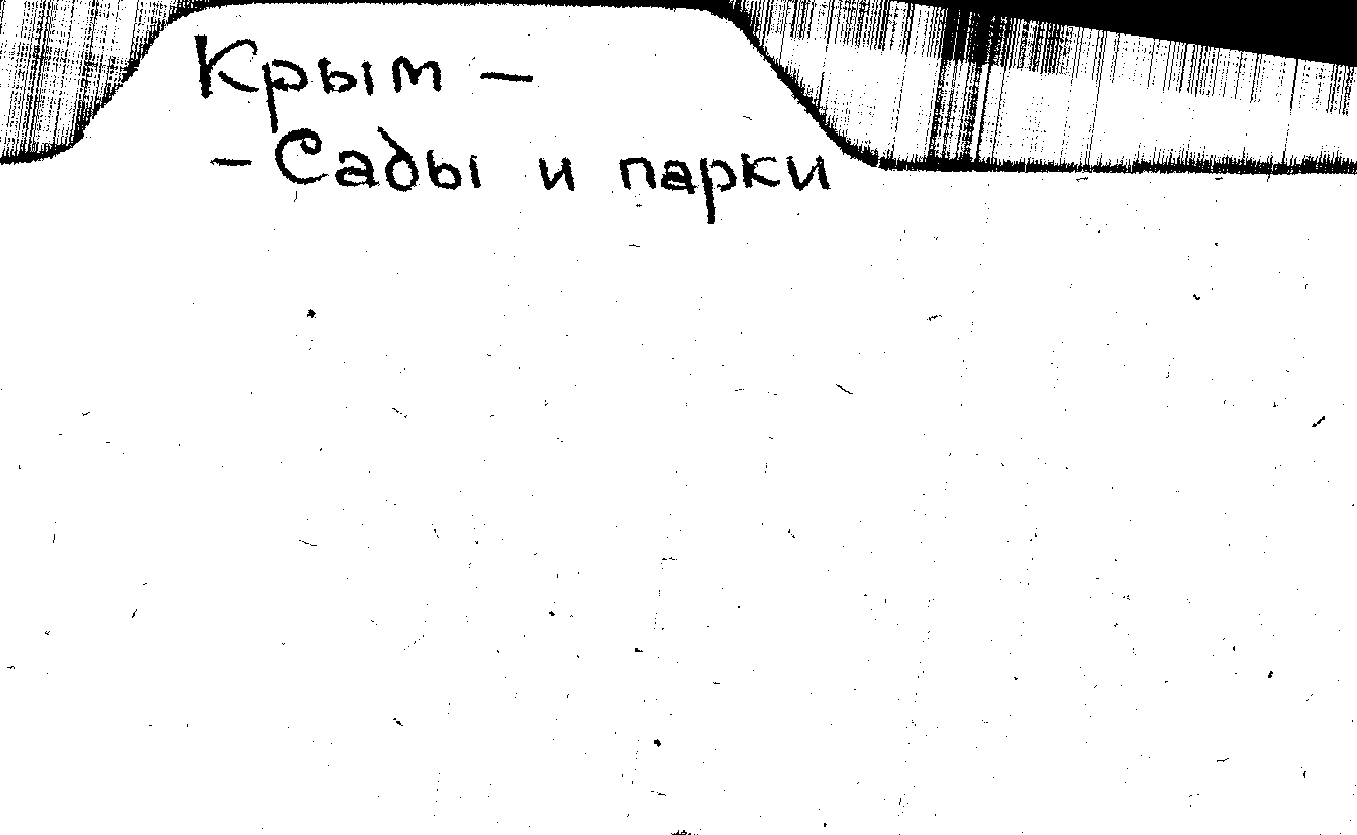 Крым —
- Сады и парки